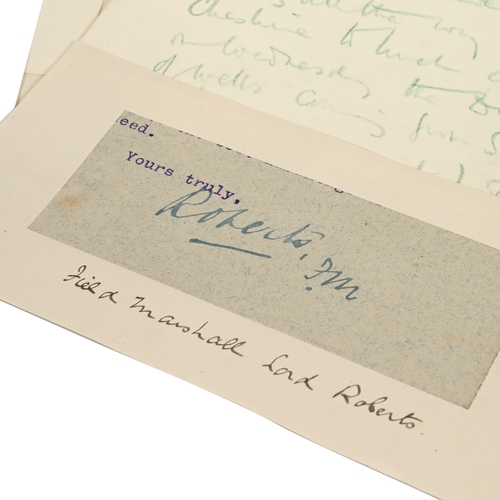 all the way
Cheshire to which
on Wednesday the
of Wells coming from
eed.
Yours truly,
Roberts, F.M
Field Marshall Lord Roberts.